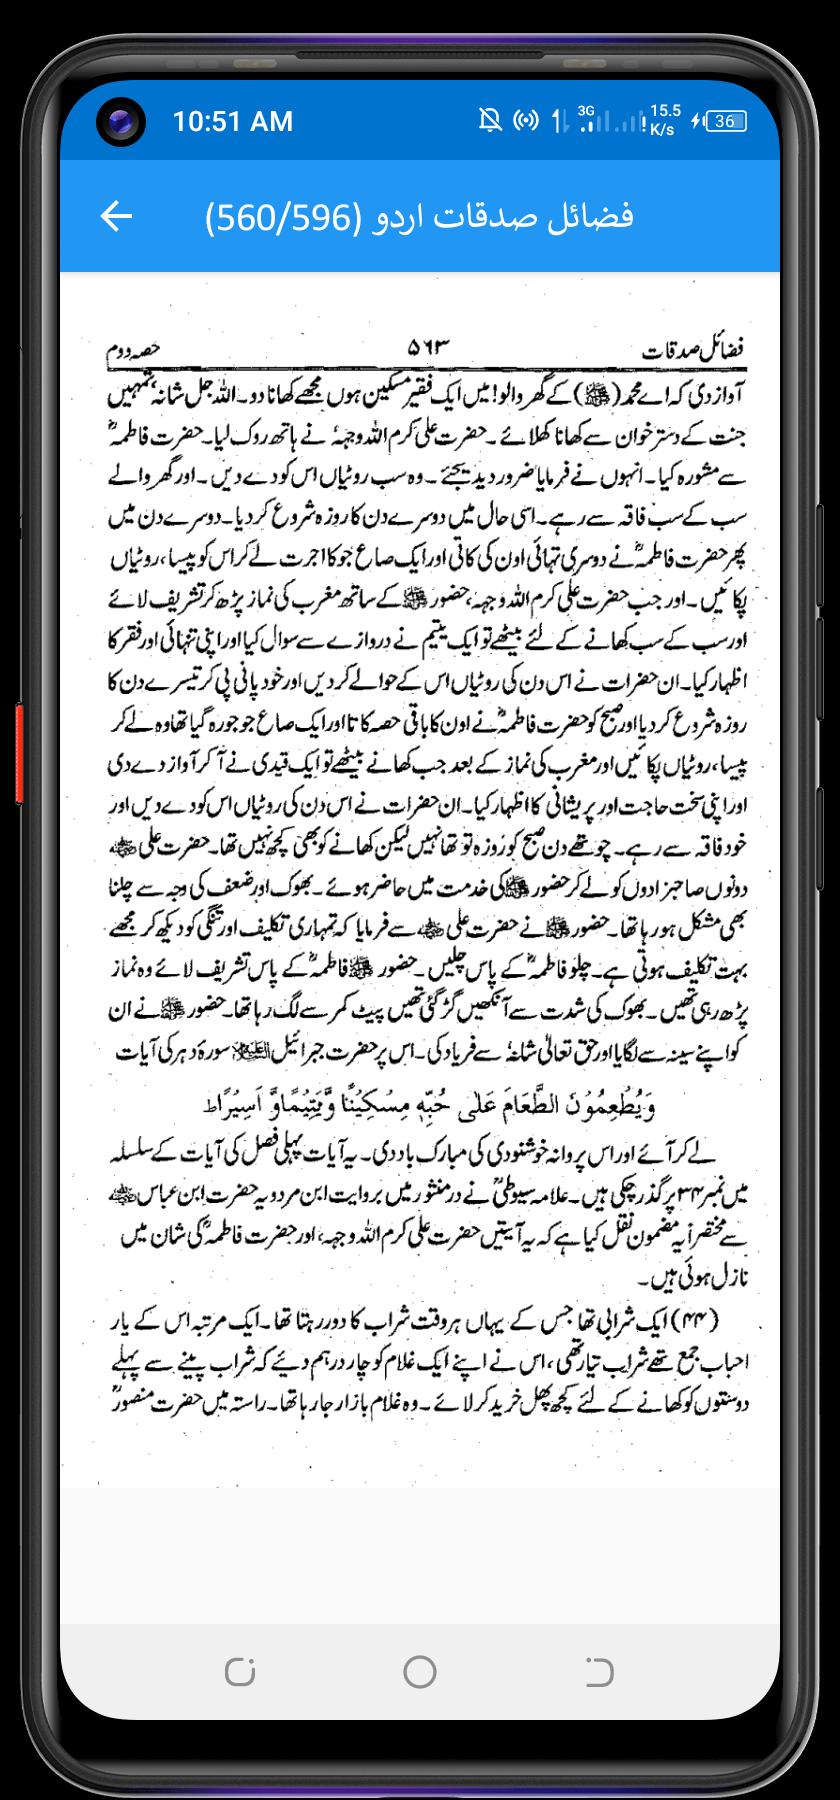 10:51 AM
3G
15.5
K/s
36
فضائل صدقات اردو (560/596)
فضائل صدقات ۵۶۳ حصہ دوم
آواز دی کہ اے محمد (ﷺ) کے گھر والو! میں ایک فقیر مسکین ہوں مجھے کھانا دو۔ اللہ جل شانہٗ تمہیں
جنت کے دستر خوان سے کھانا کھلائے ۔ حضرت علی کرم اللہ وجہہٗ نے ہاتھ روک لیا۔ حضرت فاطمہؓ
سے مشورہ کیا۔ انہوں نے فرمایا ضرور دیدیجئے ۔ وہ سب روٹیاں اس کو دے دیں ۔ اور گھر والے
سب کے سب فاقہ سے رہے۔ اسی حال میں دوسرے دن کا روزہ شروع کردیا۔ دوسرے دن میں
پھر حضرت فاطمہؓ نے دوسری تہائی اون کی کاتی اور ایک صاع جو کا اجرت لے کر اس کو پیسا، روٹیاں
پکائیں ۔ اور جب حضرت علی کرم اللہ وجہہ، حضور ﷺ کے ساتھ مغرب کی نماز پڑھ کر تشریف لائے
اور سب کے سب کھانے کے لئے بیٹھے تو ایک یتیم نے دروازے سے سوال کیا اور اپنی تنہائی اور فقر کا
اظہار کیا۔ ان حضرات نے اس دن کی روٹیاں اس کے حوالے کر دیں اور خود پانی پی کر تیسرے دن کا
روزہ شروع کر دیا اور صبح کو حضرت فاطمہؓ نے اون کا باقی حصہ کاتا اور ایک صاع جو جو رہ گیا تھا وہ لے کر
پیسا، روٹیاں پکائیں اور مغرب کی نماز کے بعد جب کھانے بیٹھے تو ایک قیدی نے آ کر آواز دے دی
اور اپنی سخت حاجت اور پریشانی کا اظہار کیا۔ ان حضرات نے اس دن کی روٹیاں اس کو دے دیں اور
خود فاقہ سے رہے۔ چوتھے دن صبح کو روزہ تو تھا نہیں لیکن کھانے کو بھی کچھ نہیں تھا۔ حضرت علی ؓ
دونوں صاحبزادوں کو لے کر حضور ﷺ کی خدمت میں حاضر ہوئے ۔ بھوک اور ضعف کی وجہ سے چلنا
بھی مشکل ہو رہا تھا۔ حضور ﷺ نے حضرت علی ؓ سے فرمایا کہ تمہاری تکلیف اور تنگی کو دیکھ کر مجھے
بہت تکلیف ہوتی ہے۔ چلو فاطمہؓ کے پاس چلیں ۔ حضور ﷺ فاطمہؓ کے پاس تشریف لائے وہ نماز
پڑھ رہی تھیں ۔ بھوک کی شدت سے آنکھیں گڑ گئی تھیں پیٹ کمر سے لگ رہا تھا۔ حضور ﷺ نے ان
کو اپنے سینہ سے لگایا اور حق تعالیٰ شانہٗ سے فریاد کی۔ اس پر حضرت جبرائیل علیہ السلام سورۂ دہر کی آیات
وَيُطْعِمُوْنَ الطَّعَامَ عَلٰى حُبِّهٖ مِسْكِيْنًا وَّيَتِيْمًا وَّ اَسِيْرًا ط
لے کر آئے اور اس پروانہ خوشنودی کی مبارک باد دی۔ یہ آیات پہلی فصل کی آیات کے سلسلہ
میں نمبر ۳۴ پر گذر چکی ہیں۔ علامہ سیوطیؒ نے درمنثور میں بروایت ابن مردویہ حضرت ابن عباس ؓ
سے مختصراً یہ مضمون نقل کیا ہے کہ یہ آیتیں حضرت علی کرم اللہ وجہہ، اور حضرت فاطمہؓ کی شان میں
نازل ہوئی ہیں۔
(۴۴) ایک شرابی تھا جس کے یہاں ہر وقت شراب کا دور رہتا تھا۔ ایک مرتبہ اس کے یار
احباب جمع تھے شراب تیار تھی، اس نے اپنے ایک غلام کو چار درہم دیئے کہ شراب پینے سے پہلے
دوستوں کو کھانے کے لئے کچھ پھل خرید کر لائے ۔ وہ غلام بازار جا رہا تھا۔ راستہ میں حضرت منصورؒ